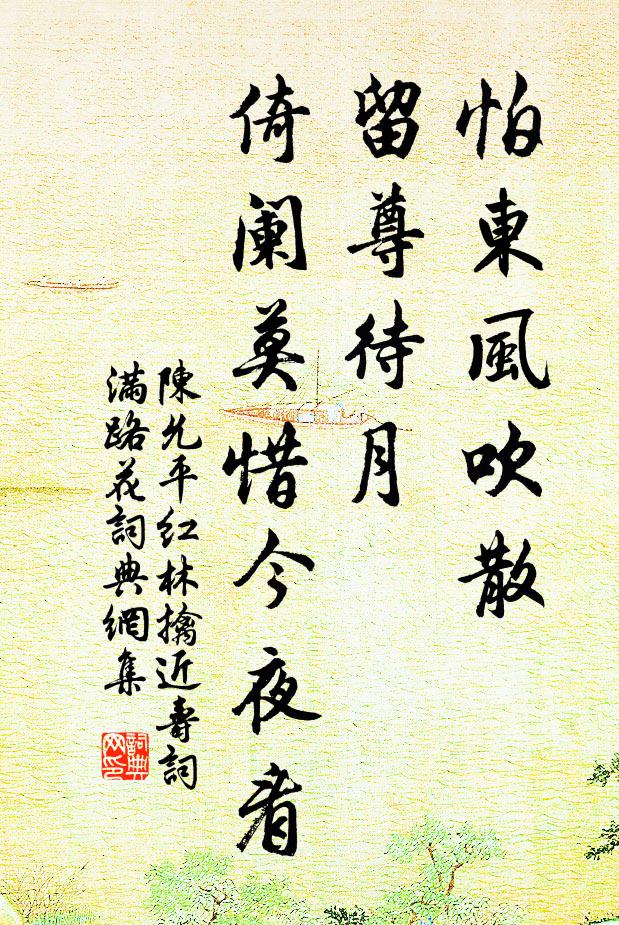 怕東風吹散
留尊待月
倚阑莫惜今夜看
陳允平红林擒近壽詞
满路花詞典網集
詞典网印